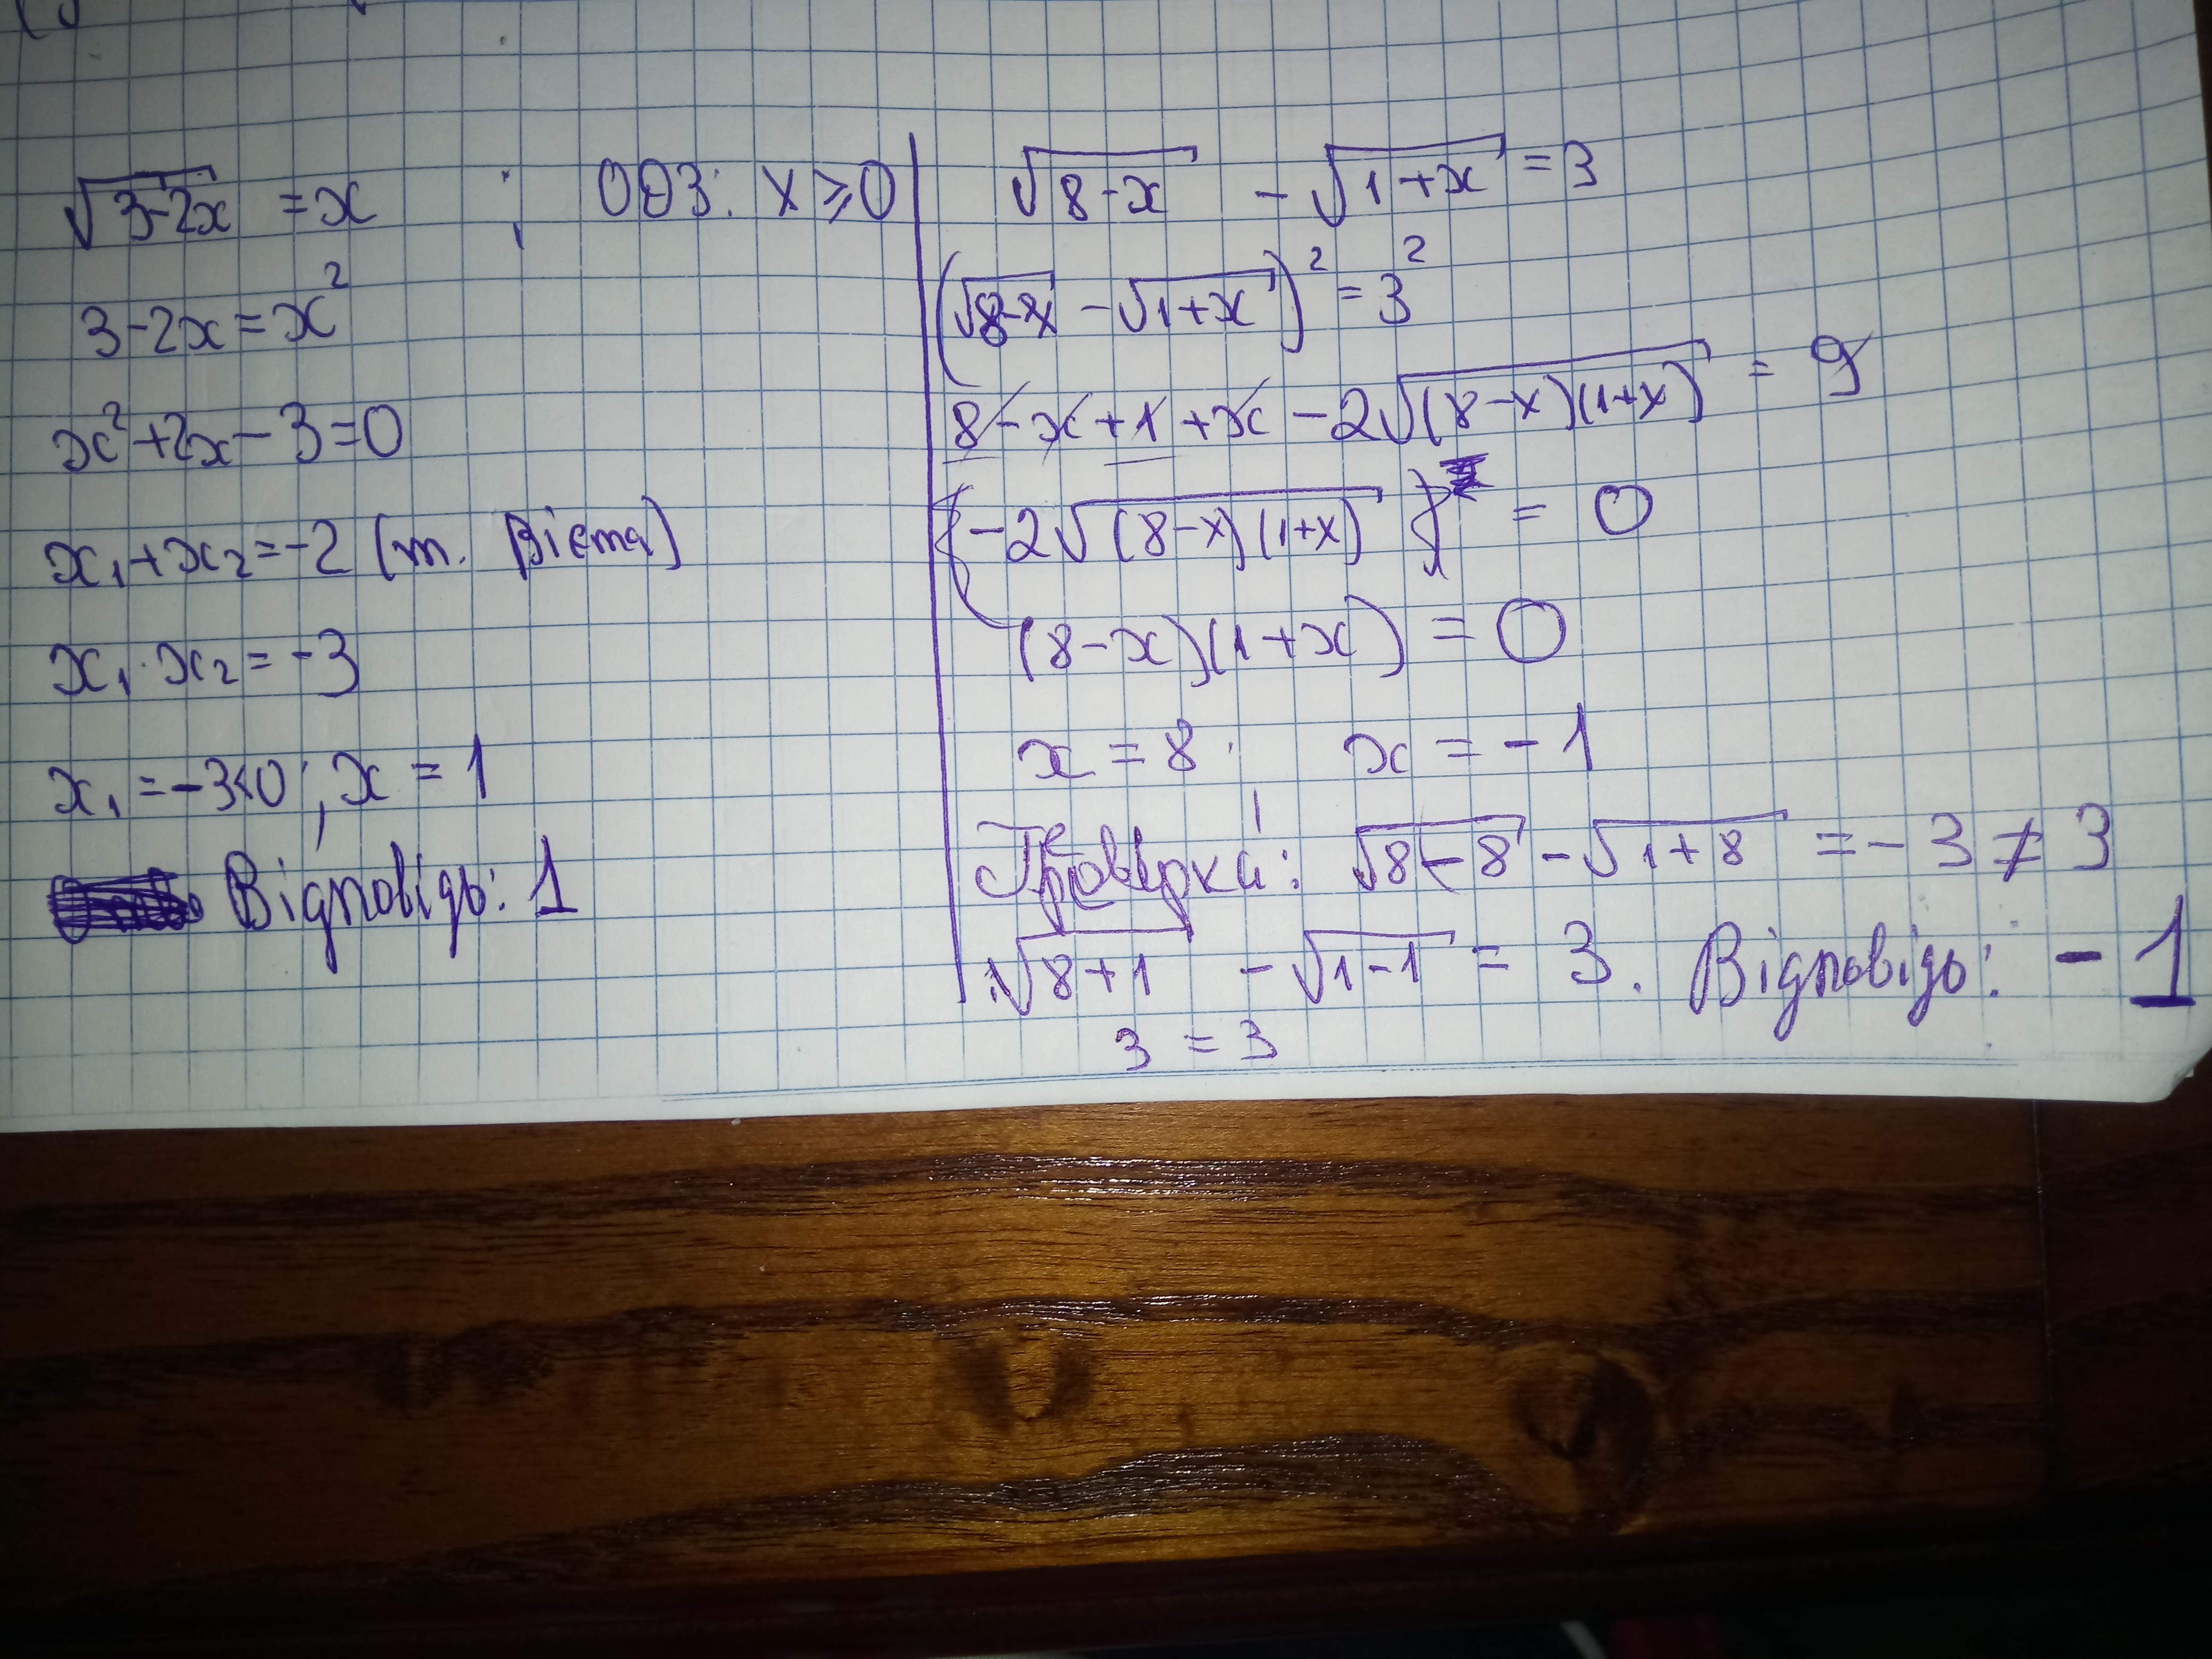 √(3-2x) = x ; ОДЗ: x ≥ 0
3-2x = x²
x²+2x-3=0
x₁+x₂=-2 (т. Вієта)
x₁·x₂=-3
x₁=-3<0; x=1
Відповідь: 1
√(8-x) - √(1+x) = 3
(√(8-x) - √(1+x))² = 3²
8-x+1+x-2√((8-x)(1+x)) = 9
-2√((8-x)(1+x)) = 0
(8-x)(1+x) = 0
x = 8; x = -1
√(8-8) - √(1+8) = -3 ≠ 3
√(8+1) - √(1-1) = 3. Відповідь: -1
3 = 3